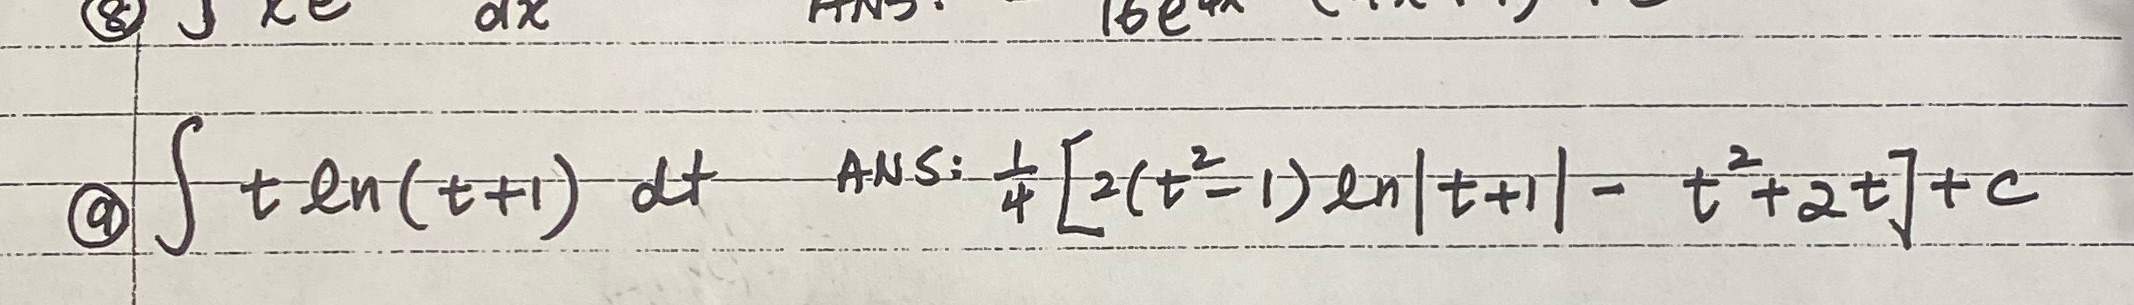 ⑧ ∫ xe dx ANS: 16e⁴ˣ
⑨ ∫ t ln(t+1) dt ANS: 1/4 [2(t²-1) ln|t+1| - t²+2t] + c